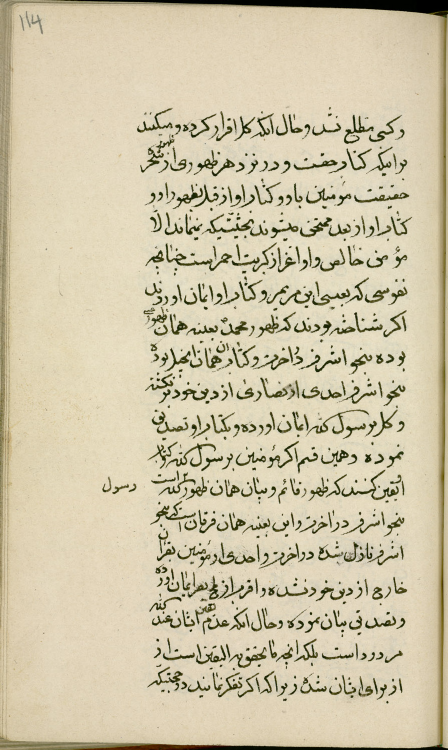 114
و کسی مطلع نشد و حال آنکه کل اقرار کرده و میکنند
بر اینکه کتاب حقست و در نزد هر ظهوری از شجره
حقیقت مؤمنین باو و کتاب او از قبل بظهور او و
کتاب او از بعد ممتحن میشوند بحیثیتیکه نمیماند الا
مؤمن خالص و او اعز از کبریت احمر است چنانچه
نفوسی که بعیسی ابن مریم و کتاب او ایمان اوردند
اکر شناخته بودند که ظهور محمد بعینه همان ظهور
بوده بنحو اشرف در اخرت و کتاب ان همان انجیل بوده
بنحو اشرف احدی از نصاری از دین خود بر نکشته
و کل برسول الله ایمان اورده و بکتاب او تصدیق
نموده و همین قسم اکر مؤمنین برسول الله و کتاب
او یقین کنند که ظهور قائم و بیان همان ظهور رسول الله است
بنحو اشرف در اخرت و این بعینه همان فرقان است که بنحو
اشرف نازل شده در اخرت واحدی از مؤمنین بفرقان
خارج از دین خود نشده و اقرب از لمح بصر ایمان اورده
و تصدیق بیان نموده و حال انکه عدم یقین ایشان عند الله
مردود است بلکه انچه ما یتحقق به الیقین است از
از برای ایشان شده زیرا که اکر تفکر نمایند در حجتیکه